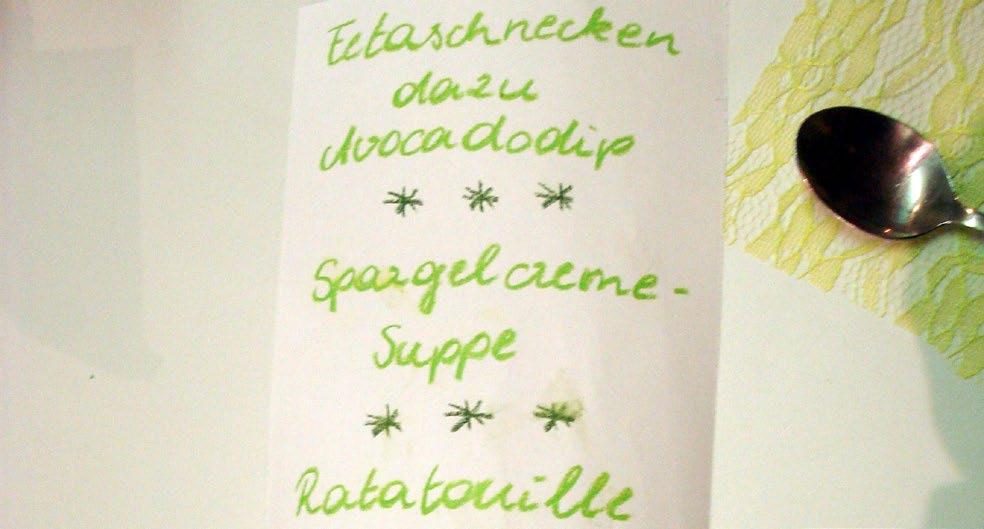 Fetaschnecken
dazu
Avocadodip
* * *
Spargelcreme-
Suppe
* * *
Ratatouille